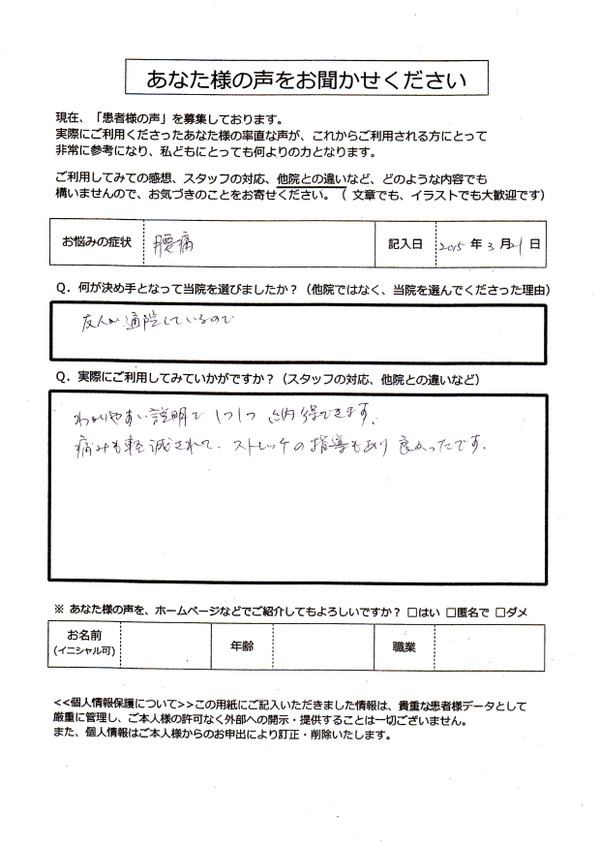 あなた様の声をお聞かせください
現在、「患者様の声」を募集しております。
実際にご利用くださったあなた様の率直な声が、これからご利用される方にとって
非常に参考になり、私どもにとっても何よりの力となります。
ご利用してみての感想、スタッフの対応、他院との違いなど、どのような内容でも
構いませんので、お気づきのことをお寄せください。（ 文章でも、イラストでも大歓迎です）
お悩みの症状 腰痛 記入日 2015 年 3 月 21 日
Q．何が決め手となって当院を選びましたか？（他院ではなく、当院を選んでくださった理由）
友人が通院しているので
Q．実際にご利用してみていかがですか？（スタッフの対応、他院との違いなど）
わかりやすい説明で 1つ1つ 納得できます。
痛みも軽減されて、ストレッチの指導もあり 良かったです。
※ あなた様の声を、ホームページなどでご紹介してもよろしいですか？ □はい □匿名で □ダメ
お名前
(イニシャル可)
年齢
職業
<<個人情報保護について>>この用紙にご記入いただきました情報は、貴重な患者様データとして
厳重に管理し、ご本人様の許可なく外部への開示・提供することは一切ございません。
また、個人情報はご本人様からのお申出により訂正・削除いたします。